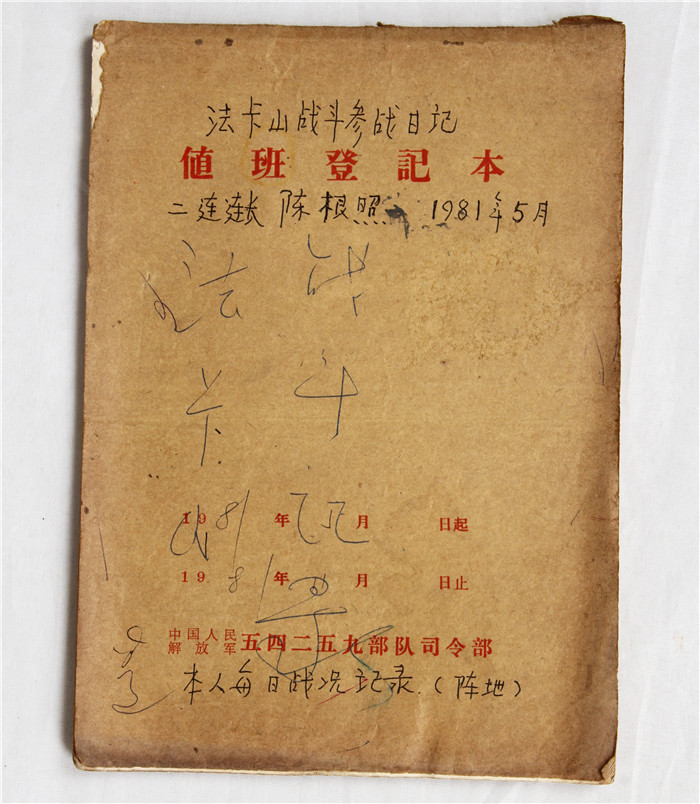 法卡山战斗参战日记
値班登記本
二连连长 陈根照 1981年5月
法卡山
战斗记录
1981年 月 日起
1981年 月 日止
中国人民解放军 五四二五九部队司令部
本人每日战况记录.(阵地)